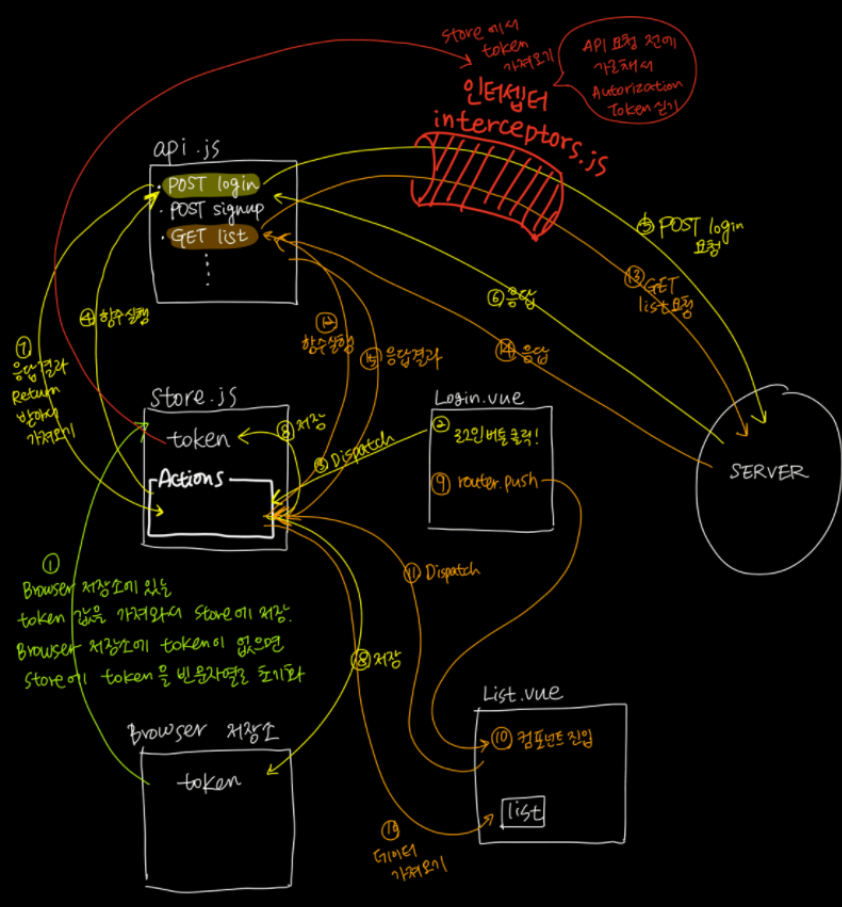 store에서
token
가져오기
API 요청 전에
가로채서
Autorization
Token 싣기
인터셉터
interceptors.js
api.js
· POST login
· POST signup
· GET list
⑤ POST login
요청
⑬ GET
list요청
⑥ 응답
⑭ 응답
④ 함수실행
⑫
함수실행
⑮ 응답결과
⑦
응답결과
Return
받아서
가져오기
Store.js
token
Actions
⑧ 저장
③ Dispatch
Login.vue
② 로그인버튼클릭!
⑨ router.push
SERVER
①
Browser 저장소에 있는
token 값을 가져와서 Store에 저장.
Browser 저장소에 token이 없으면
Store에 token을 빈문자열로 초기화
⑪ Dispatch
⑧ 저장
List.vue
⑩ 컴포넌트 진입
list
Browser 저장소
token
데이터
가져오기